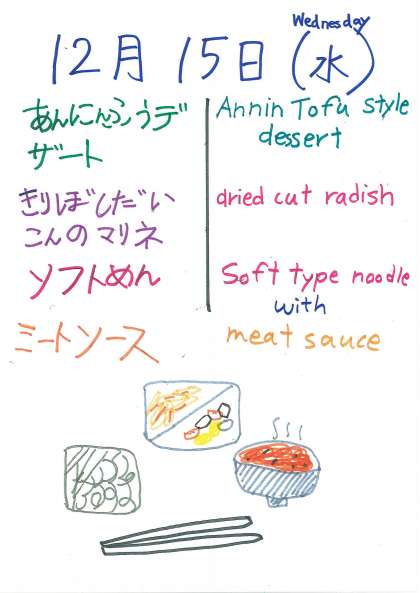 Wednesday
12月15日(水)
あんにんふうデ
ザート
Annin Tofu style
dessert
きりぼしだい
こんのマリネ
dried cut radish
ソフトめん
Soft type noodle
with
ミートソース
meat sauce